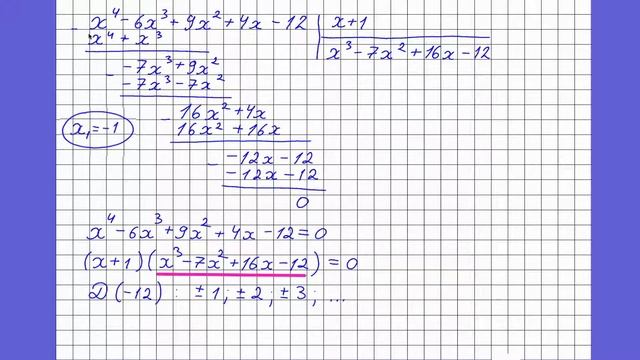 x⁴ - 6x³ + 9x² + 4x - 12 | x + 1
x⁴ + x³
x³ - 7x² + 16x - 12
- -7x³ + 9x²
-7x³ - 7x²
- 16x² + 4x
16x² + 16x
x₁ = -1
- -12x - 12
-12x - 12
0
x⁴ - 6x³ + 9x² + 4x - 12 = 0
(x + 1)(x³ - 7x² + 16x - 12) = 0
Д(-12) : ±1; ±2; ±3; ...